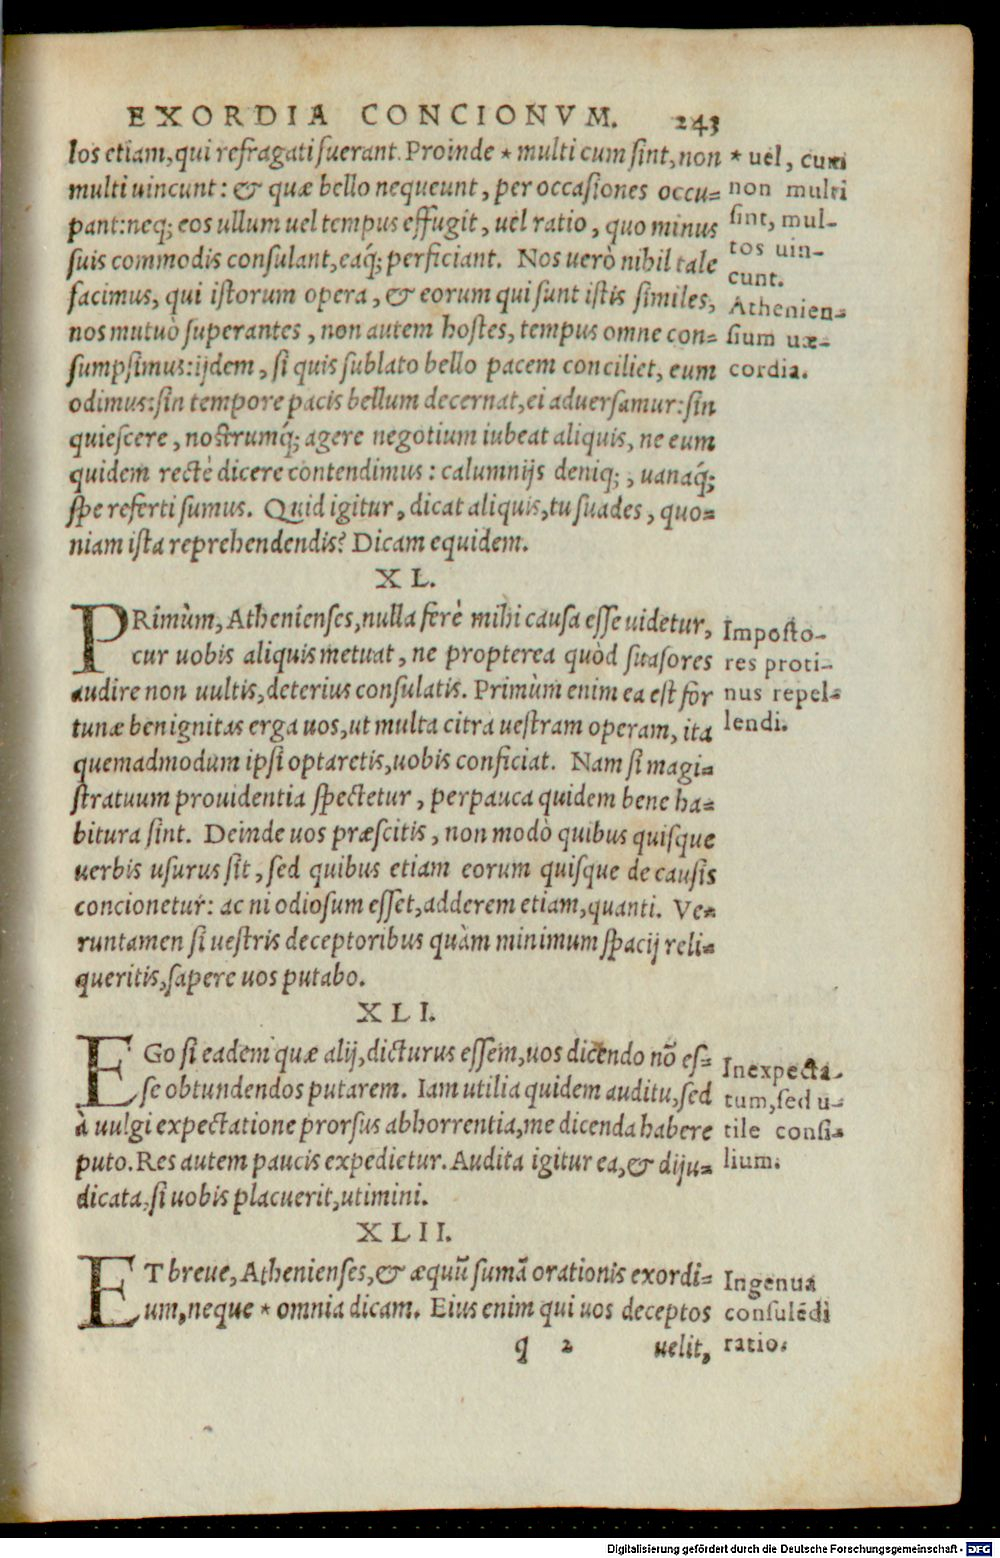 EXORDIA CONCIONVM. 243
los etiam, qui refragati fuerant. Proinde * multi cum sint, non
multi uincunt: & quæ bello nequeunt, per occasiones occu-
pant: neq; eos ullum uel tempus effugit, uel ratio, quo minus
suis commodis consulant, eaq́; perficiant. Nos uerò nihil tale
facimus, qui istorum opera, & eorum qui sunt istis similes,
nos mutuò superantes, non autem hostes, tempus omne con-
sumpsimus: ijdem, si quis sublato bello pacem conciliet, eum
odimus: sin tempore pacis bellum decernat, ei aduersamur: sin
quiescere, nostrumq́; agere negotium iubeat aliquis, ne eum
quidem rectè dicere contendimus: calumnijs deniq;, uanaq́;
spe referti sumus. Quid igitur, dicat aliquis, tu suades, quo-
niam ista reprehendendis? Dicam equidem.
* uel, cum
non multi
sint, mul-
tos uin-
cunt.
Athenien-
sium uæ-
cordia.
XL.
PRimùm, Athenienses, nulla ferè mihi causa esse uidetur,
cur uobis aliquis metuat, ne propterea quòd suasores
audire non uultis, deterius consulatis. Primùm enim ea est for
tunæ benignitas erga uos, ut multa citra uestram operam, ita
quemadmodum ipsi optaretis, uobis conficiat. Nam si magi-
stratuum prouidentia spectetur, perpauca quidem bene ha-
bitura sint. Deinde uos præscitis, non modò quibus quisque
uerbis usurus sit, sed quibus etiam eorum quisque de causis
concionetur: ac ni odiosum esset, adderem etiam, quanti. Ve-
runtamen si uestris deceptoribus quàm minimum spacij reli-
queritis, sapere uos putabo.
Imposto-
res proti-
nus repel-
lendi.
XLI.
EGo si eadem quæ alij, dicturus essem, uos dicendo nõ es-
se obtundendos putarem. Iam utilia quidem auditu, sed
à uulgi expectatione prorsus abhorrentia, me dicenda habere
puto. Res autem paucis expedietur. Audita igitur ea, & diju-
dicata, si uobis placuerit, utimini.
Inexpecta-
tum, sed u-
tile consi-
lium.
XLII.
ET breue, Athenienses, & æquũ sumã orationis exordi-
um, neque * omnia dicam. Eius enim qui uos deceptos
Ingenua
consulẽdi
ratio.
q 2 uelit,
Digitalisierung gefördert durch die Deutsche Forschungsgemeinschaft - DFG